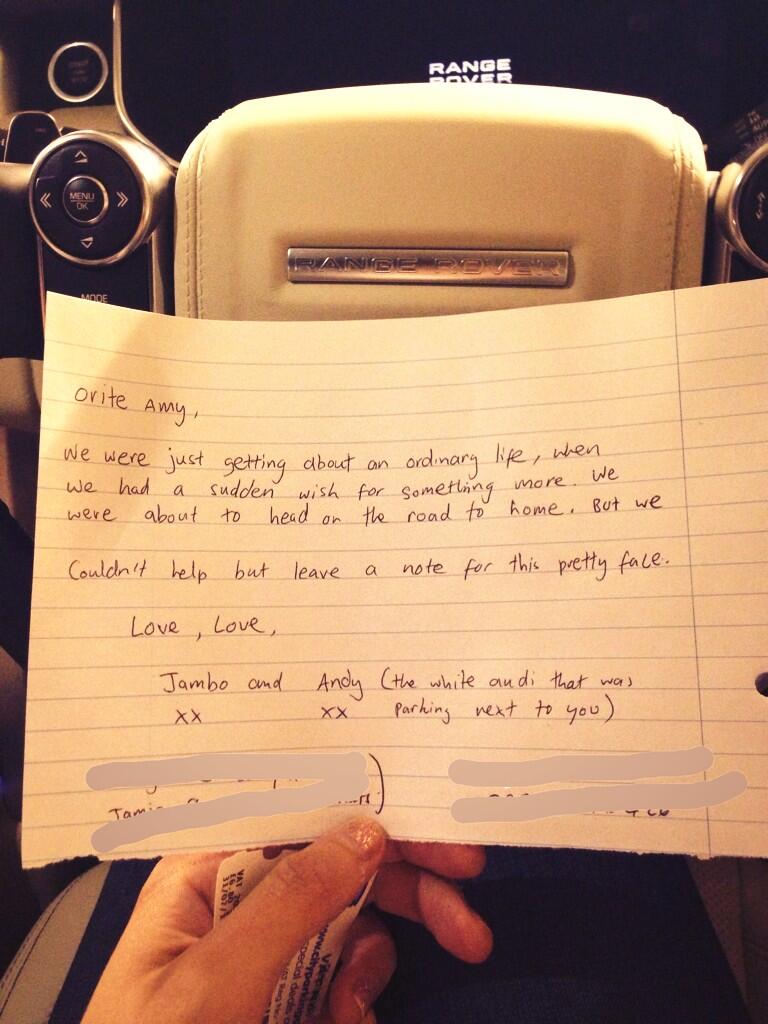 RANGE
ROVER
MENU
OK
RANGE ROVER
MODE
Orite Amy,
We were just getting about an ordinary life, when
we had a sudden wish for something more. We
were about to head on the road to home. But we
Couldn't help but leave a note for this pretty face.
Love, Love,
Jambo and Andy (the white audi that was
xx xx parking next to you)